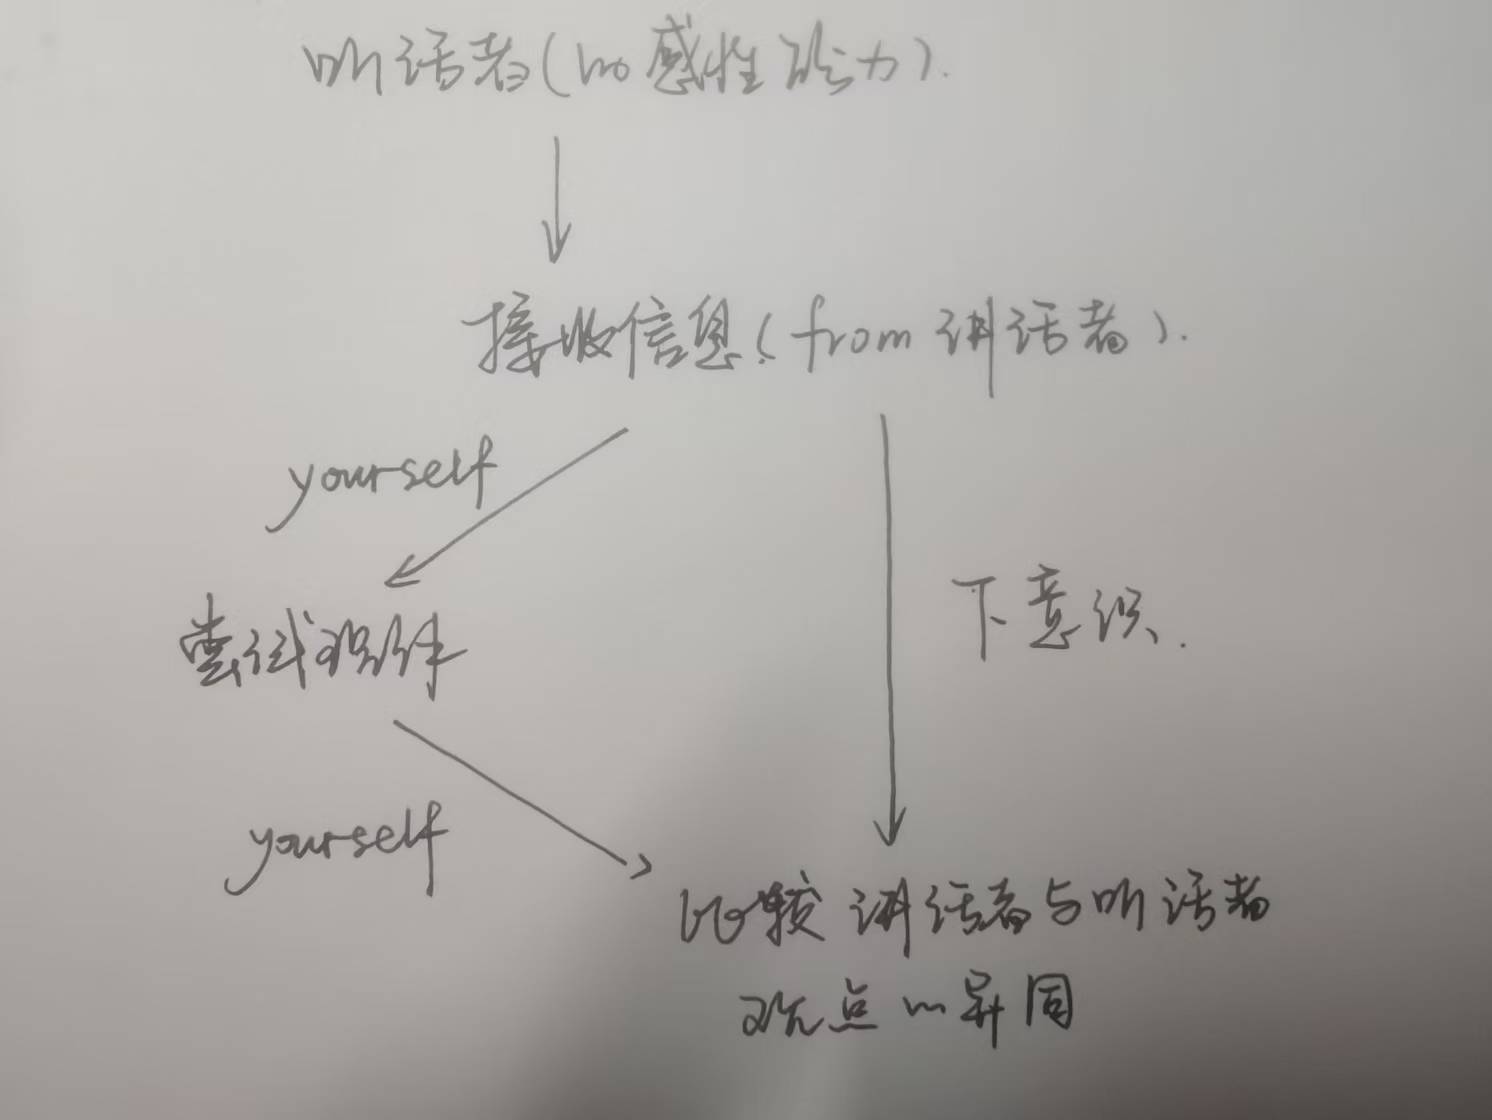 听话者(no感性能力).
接收信息(from 讲话者).
yourself
下意识.
尝试理解
yourself
比较讲话者与听话者
观点的异同